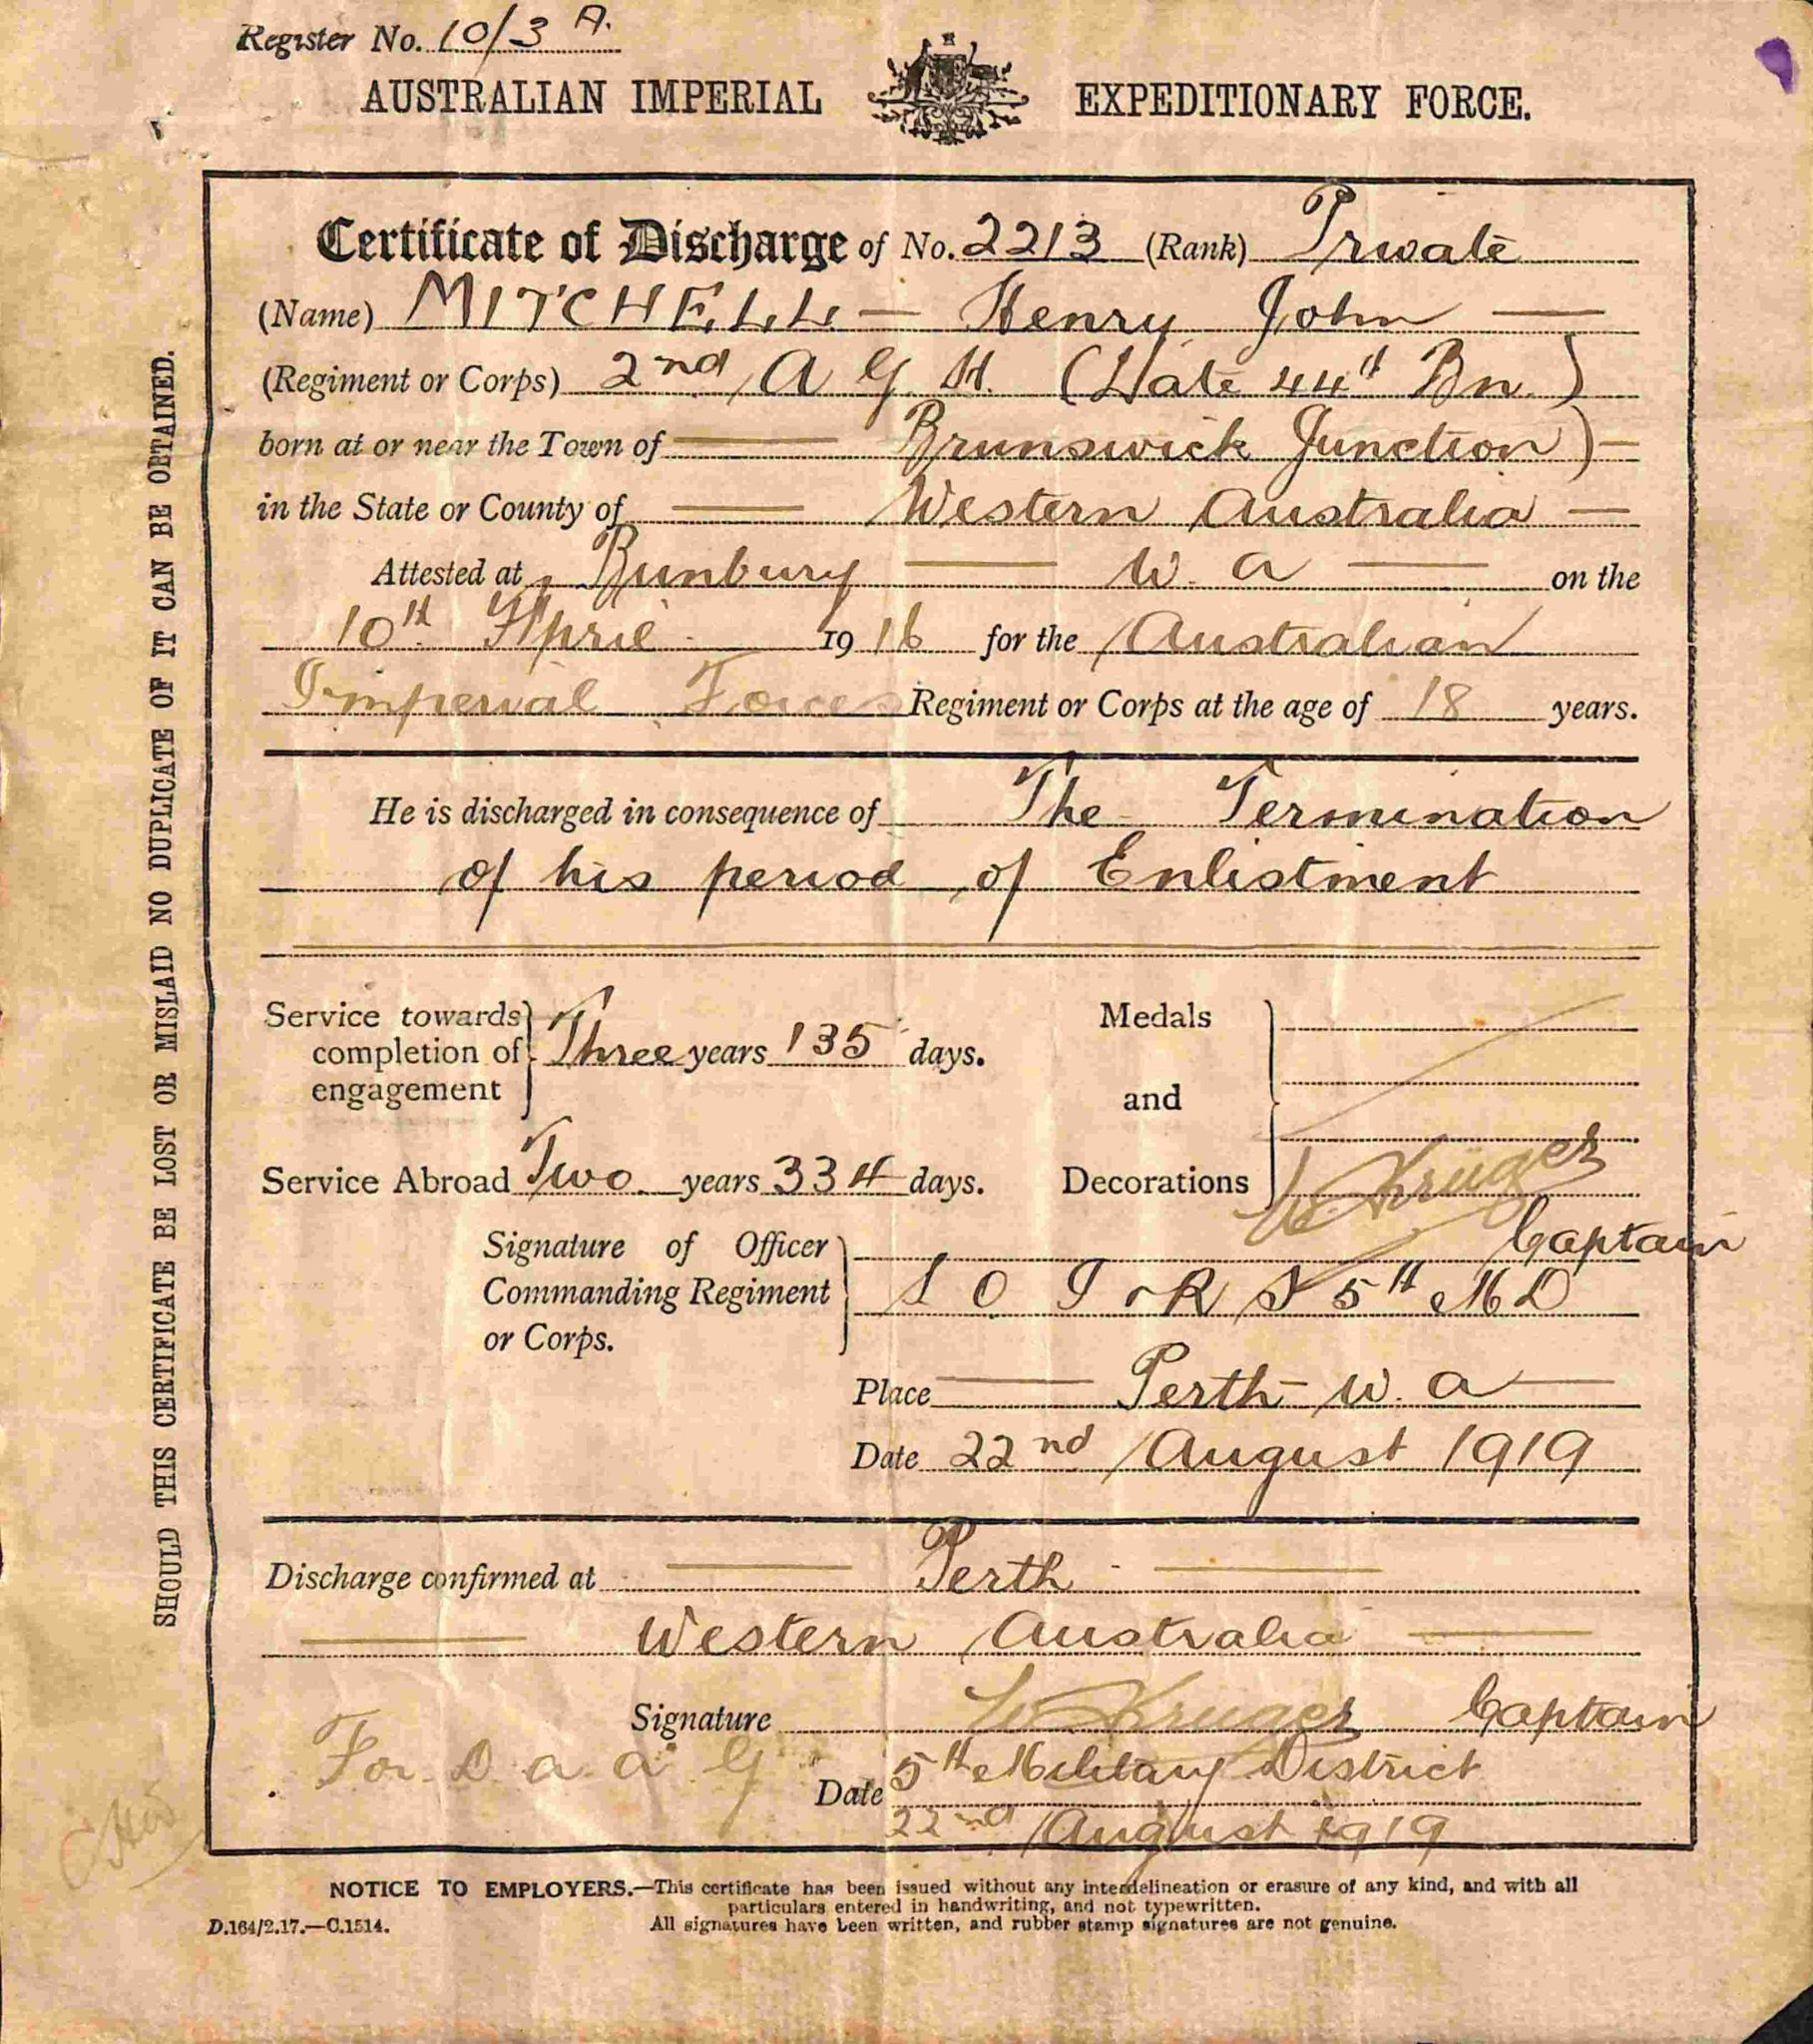 Register No. 10/3 A.
AUSTRALIAN IMPERIAL EXPEDITIONARY FORCE.
Certificate of Discharge of No. 2213 (Rank) Private
(Name) MITCHELL — Henry John —
(Regiment or Corps) 2nd A G H. (Late 44th Bn.)
born at or near the Town of — Brunswick Junction) —
in the State or County of — Western Australia —
Attested at Bunbury — W. A — on the
10th April 1916 for the Australian
Imperial Forces Regiment or Corps at the age of 18 years.
He is discharged in consequence of The Termination
of his period of Enlistment
Service towards completion of engagement } Three years 135 days.
Medals and Decorations }
Service Abroad Two years 334 days.
Kruger
Captain
Signature of Officer Commanding Regiment or Corps. } S O I & R S 5th MD
Place — Perth — W. A —
Date 22nd August 1919
Discharge confirmed at — Perth —
— Western Australia —
Signature Kruger Captain
For D a a G
5th Military District
Date 22nd August 1919
NOTICE TO EMPLOYERS.—This certificate has been issued without any interdelineation or erasure of any kind, and with all
particulars entered in handwriting, and not typewritten.
D.164/2.17.—C.1514. All signatures have been written, and rubber stamp signatures are not genuine.
SHOULD THIS CERTIFICATE BE LOST OR MISLAID NO DUPLICATE OF IT CAN BE OBTAINED.